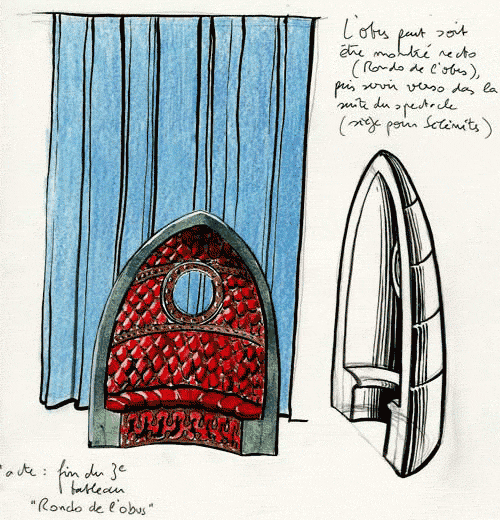 L'obus peut soit
être montré recto
(Rondo de l'obus),
puis servir verso dans la
suite du spectacle
(siège pour Sélénites)
acte : fin du 3e
tableau
"Rondo de l'obus"